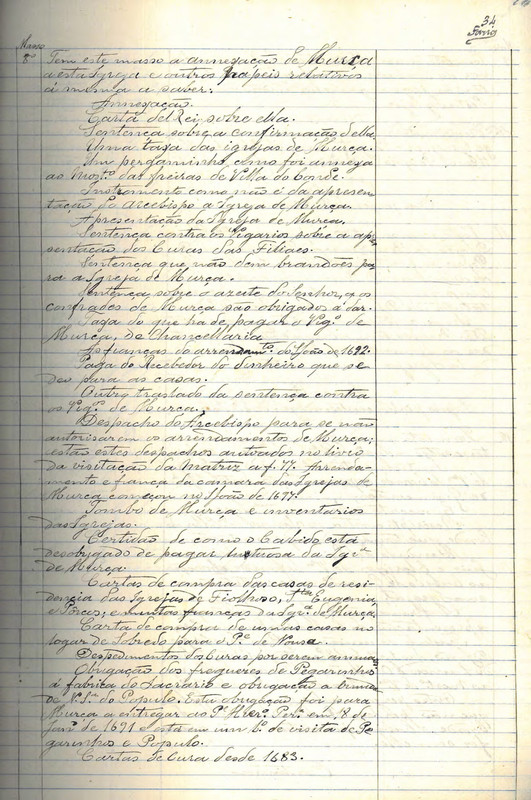 34
Masso
8º Tem este masso a annexação de Murça
a esta Igreja e outros papeis relativos
á mesma a saber:
Annexação.
Carta del Rei sobre ella.
Sentença sobre a confirmação della.
Uma taxa das igrejas de Murça.
Um pergaminho como foi annexa
ao Mostº das freiras de Villa do Conde.
Instromento como não é da apresen-
tação do Arcebispo a Igreja de Murça.
Apresentação da Igreja de Murça.
Sentença contra os Vigarios sobre a apre
sentação dos Curas das Filiaes.
Sentença que não dem brandões pa
ra a Igreja de Murça.
Sentença sobre o azeite do Senhor, q os
confrades de Murça são obrigados a dar.
Taxa do que ha de pagar o Vigº de
Murça, se Chancellaria.
As fianças do arrendamtº do S. João de 1692.
Paga do Recebedor do dinheiro que se
deo para as casas.
Outro traslado da sentença contra
os Vigros de Murça.
Despacho do Arcebispo para se não
autorisarem os arrendamentos de Murça;
estão estes despachos autuados no livro
da visitação da Matriz a f. 77. Arrenda-
mento e fiança da camara das Igrejas de
Murça começou no S. João de 1677.
Tombo de Murça e inventarios
das Igrejas.
Certidão de como o Cabido está
desobrigado de pagar luctuosa da Igrª
de Murça.
Cartas de compra das casas de resi-
dencia das Igrejas de Fiolhoso, Stª Eugenia,
e Povos; e muitas fianças da Igrª de Murça.
Carta de compra de umas casas no
logar de Sobredo para o Pe de Noura.
Despedimentos dos Curas por serem annuaes
Obrigação dos freguezes de Pegarinhos
á fabrica do Sacrario e obrigação a Ermida
de N. Srª do Populo. Esta obrigação foi para
Murça a entregar ao Pe Mel Perª em 8 de
Janº de 1691 e está em um Lº de visita de Pe
garinhos e Populo.
Cartas de Cura desde 1683.